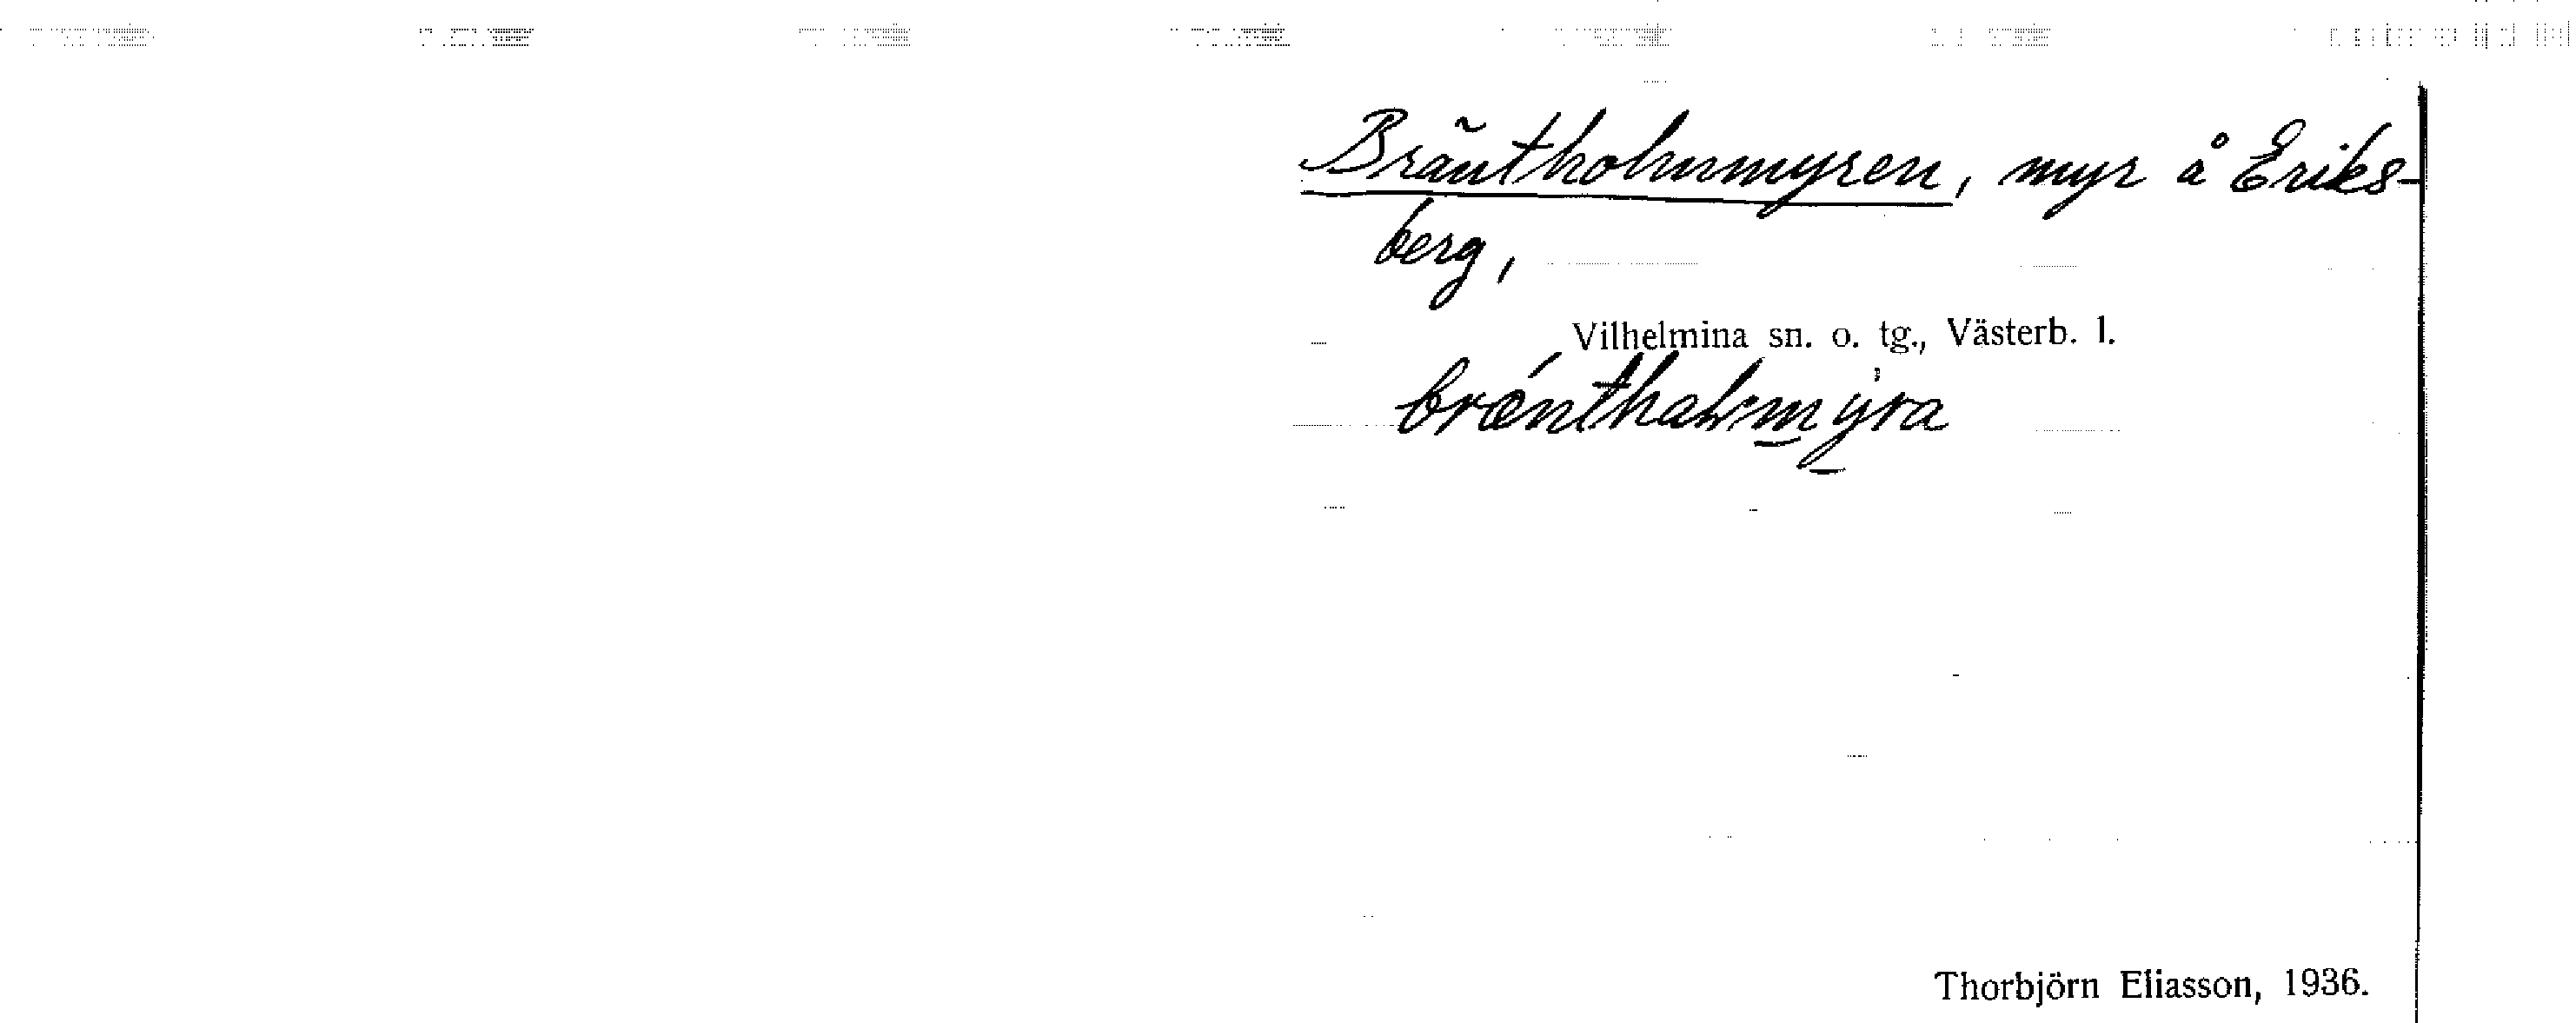 Bräntholmmyren, myr å Eriks-
berg,
Vilhelmina sn. o. tg., Västerb. l.
Thorbjörn Eliasson, 1936.